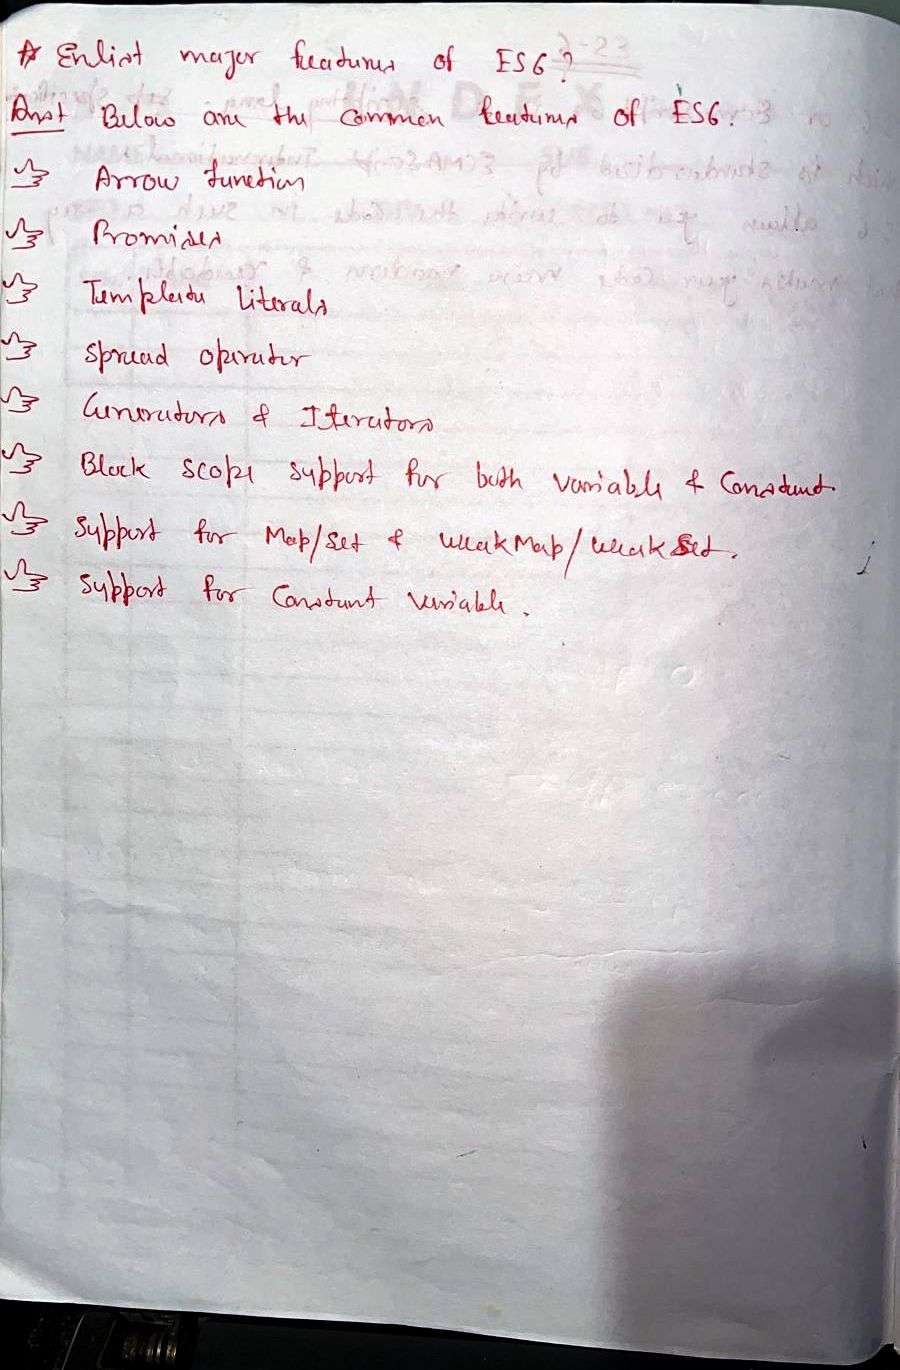 * Enlist major features of ES6?
Ans: Below are the common features of ES6.
Arrow function
Promises
Template literals
Spread operator
Generators & Iterators
Block scope support for both variable & Constant.
Support for Map/Set & WeakMap/WeakSet.
Support for Constant variable.